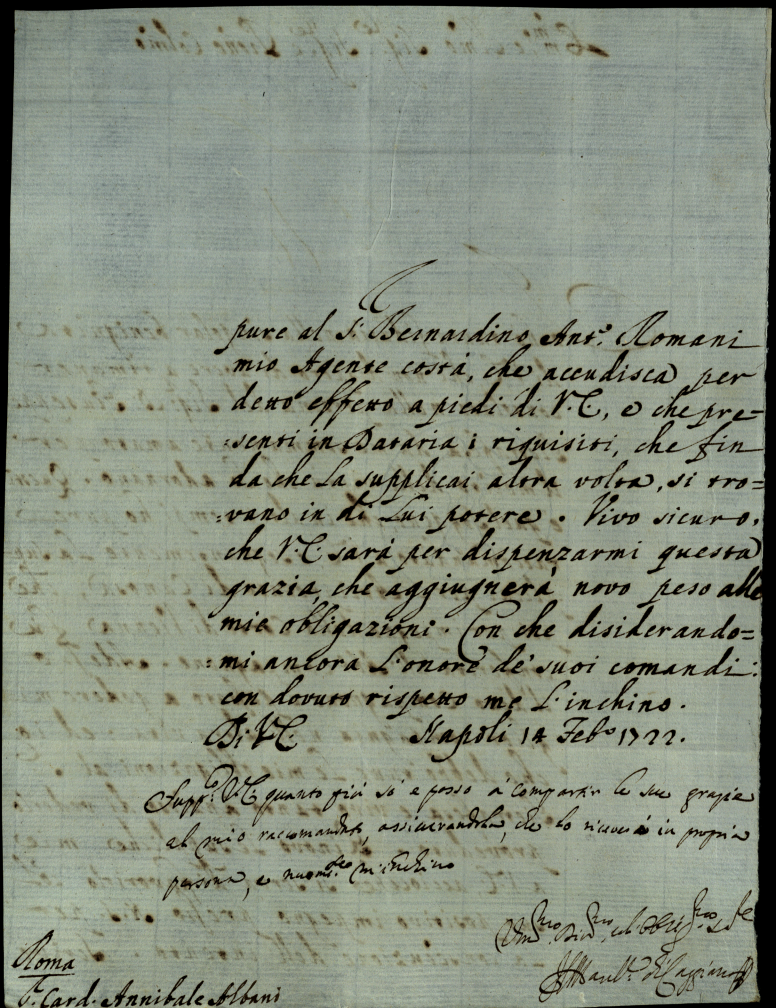 pure al S.r Bernardino Ant.o Romani
mio Agente costà, che accudisca per
detto effetto a piedi di V.E., e che pre=
=senti in Dataria i riquisiti, che fin
da che La supplicai altra volta, si tro=
=vano in di Lui potere. Vivo sicuro,
che V.E. sarà per dispenzarmi questa
grazia, che aggiugnerà novo peso alle
mie obligazioni. Con che disiderando=
=mi ancora L'onore de' suoi comandi:
con dovuto rispetto me L'inchino.
Di V.E. Napoli 14 Feb.o 1722.
Supp.co V.E. quanto più so e posso à compartir le sue grazie
al mio raccomandato, assicurandola, che lo riceverò in propria
persona, e m'inchino
Um.mo Div.mo ed Oblig.mo
Roma
S.r Card. Annibale Albani